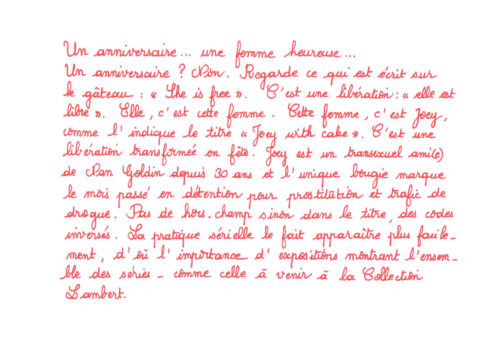 Un anniversaire... une femme heureuse...
Un anniversaire ? Non. Regarde ce qui est écrit sur
le gâteau : « She is free ». C'est une libération : « elle est
libre ». Elle, c'est cette femme. Cette femme, c'est Joey,
comme l'indique le titre « Joey with cake ». C'est une
libération transformée en fête. Joey est un transsexuel ami(e)
de Nan Goldin depuis 30 ans et l'unique bougie marque
le mois passé en détention pour prostitution et trafic de
drogue. Pas de hors-champ sinon dans le titre, des codes
inversés. La pratique sérielle le fait apparaître plus facile-
ment, d'où l'importance d'expositions montrant l'ensem-
ble des séries - comme celle à venir à la Collection
Lambert.